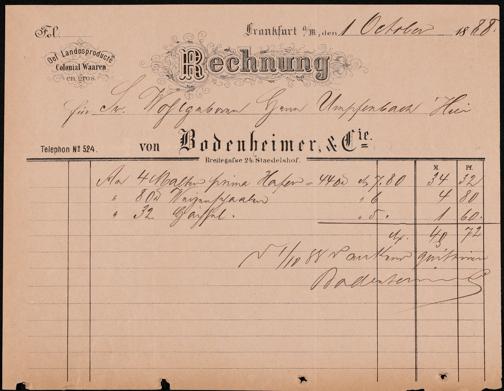 Fol.
Frankfurt a/M., den 1 October 1888.
Oel Landesproducte
Colonial Waaren
en gros.
Rechnung
für Sr. Wohlgeboren Herrn Umpfenbach Hier
Telephon No 524.
von Bodenheimer, & Cie.
Breitegasse 24 Staedelshof.
M. Pf.
An 4 Malter prima Hafer = 440 d 7.80 34 32
" 80 d " 6 4 80
" 32 " 5. 1 60.
M. 40 72
1/10 88 Dankend quittiren
Bodenheimer